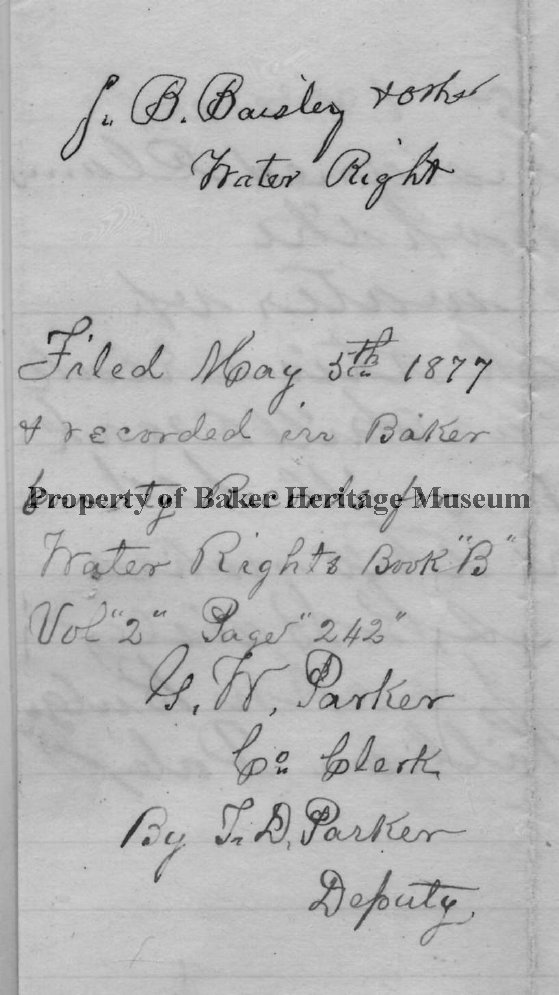 J. B. Baisley & others
Water Right
Filed May 5th 1877
& recorded in Baker
County Records of
Property of Baker Heritage Museum
Water Rights Book "B"
Vol "2" Page "242"
G. W. Parker
Co Clerk
By T. D. Parker
Deputy,